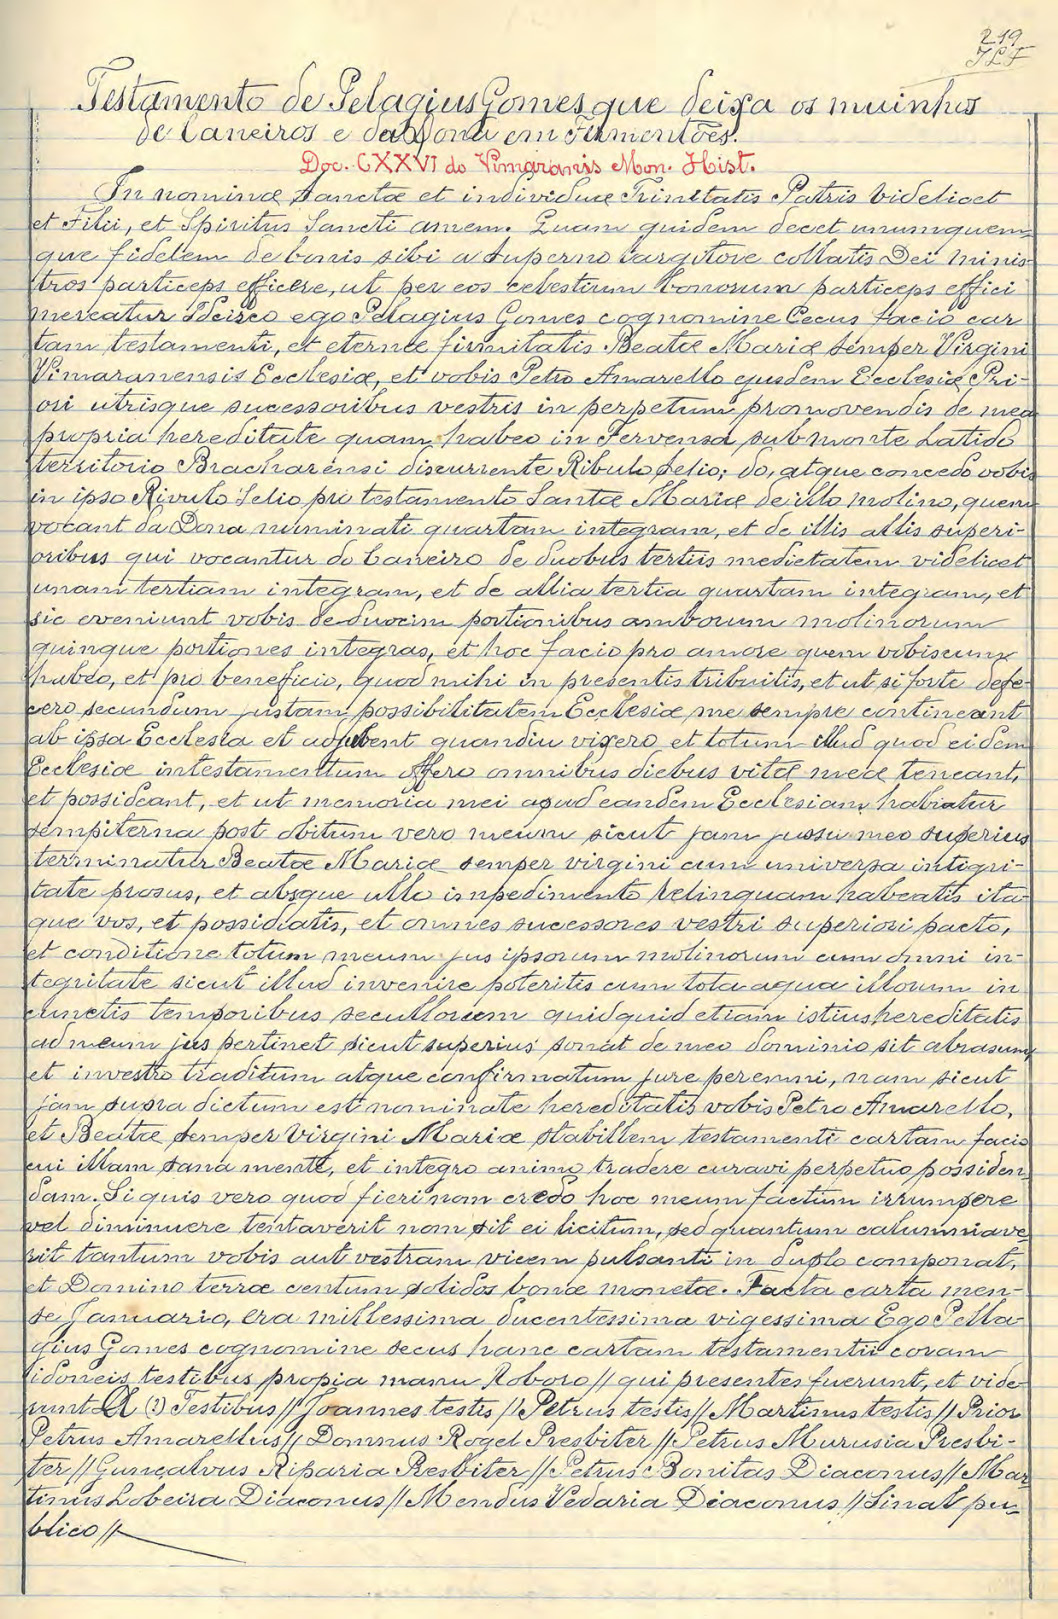 219
JLF
Testamento de Pelagius Gomes que deixa os muinhos
de Caneiros e da Dona em Fermentões.
Doc. CXXVI do Vimaranis Mon. Hist.
In nominæ Sanctæ et individuæ Trinitatis Patris videlicet
et Filii, et Spiritus Sancti amem. Quam quidem decet unumquem-
que fidelem de bonis sibi a superno largitore collatis Dei minis-
tros particeps efficere, ut per eos celestium bonorum particeps effici
mereatur Idcirco ego Pelagius Gomes cognomine Cecus facio car
tam testamenti, et eternæ firmitatis Beatæ Mariæ semper Virgini
Vimaranensis Ecclesiæ, et vobis Petro Amarello ejusdem Ecclesiæ Pri-
ori utrisque sucessoribus vestris in perpetum promovendis de mea
propria hereditate quam habeo in Fervensa sub monte Latido
territorio Bracharensi discurrente Ribulo Selio; do, atque concedo vobis
in ipso Rivulo Selio pro testamento Santæ Mariæ de illo molino, quem
vocant da Dona numinati quartam integram, et de illis allis superi-
oribus qui vocantur do Caneiro de duobus tertiis medietatem videlicet
unam tertiam integram, et de allia tertia quartam integram, et
sic eveniunt vobis de duocim portionibus amborum molinorum
quinque portiones integras, et hoc facio pro amore quem vobiscum
habeo, et pro beneficio, quod mihi in presentis tribuitis, et ut si forte defe-
cero secundum justam possibilitatem Ecclesiæ me sempre contineant
ab ipsa Ecclesia et adjubent quandiu vixero et totum illud quod eidem
Ecclesiæ intestamentum offero omnibus diebus vitæ meæ teneant,
et possideant, et ut memoria mei apud eandem Ecclesiam habiatur
sempiterna post obitum vero meum sicut jam jussu meo superius
terminatur Beatæ Mariæ semper virgini cum universa intigri-
tate prosus, et absque ullo inpedimento relinquam habeatis ita
que vos, et possidiatis, et omnes sucessores vestri superiori pacto,
et conditione totum meum jus ipsorum molinorum cum omni in-
tegritate sicut illud invenire poteritis cum tota aqua illorum in
cunctis temporibus secullorum quidquid etiam istius hereditatis
ad meum jus pertinet sicut superius sonat de meo dominio sit abrasum,
et investro traditum atque confirmatum jure peremni, nam sicut
jam supra dictum est nominate hereditatis vobis Petro Amarello,
et Beatæ semper Virgini Mariæ stabillem testamenti cartam facio
cui illam sana mente, et integro animo tradere curavi perpetuo possiden
dam. Si quis vero quod fieri non credo hoc meum factum irrumpere
vel diminuere tentaverit non sit ei licitum, sed quantum calumniave
rit tantum vobis aut vestram vicem pulsanti in duplo componat,
et Domino terræ centum solidos bonæ monetæ. Facta carta men-
se Januario, era millessima ducentessima vigessima Ego Pella-
gius Gomes cognomine secus hanc cartam testamentii coram
idoneis testibus propia manu Roboro // qui presentes fuerunt, et vide
runt (1) Testibus // Joannes testis // Petrus testis // Martinus testis // Prior
Petrus Amarellus // Domnus Rogel Presbiter // Petrus Murusia Presbi-
ter // Gunçalvus Riparia Presbiter // Petrus Bonitas Diaconus // Mar
tinus Lobeira Diaconus // Mendus Vedaria Diaconus // Sinal pu-
blico //